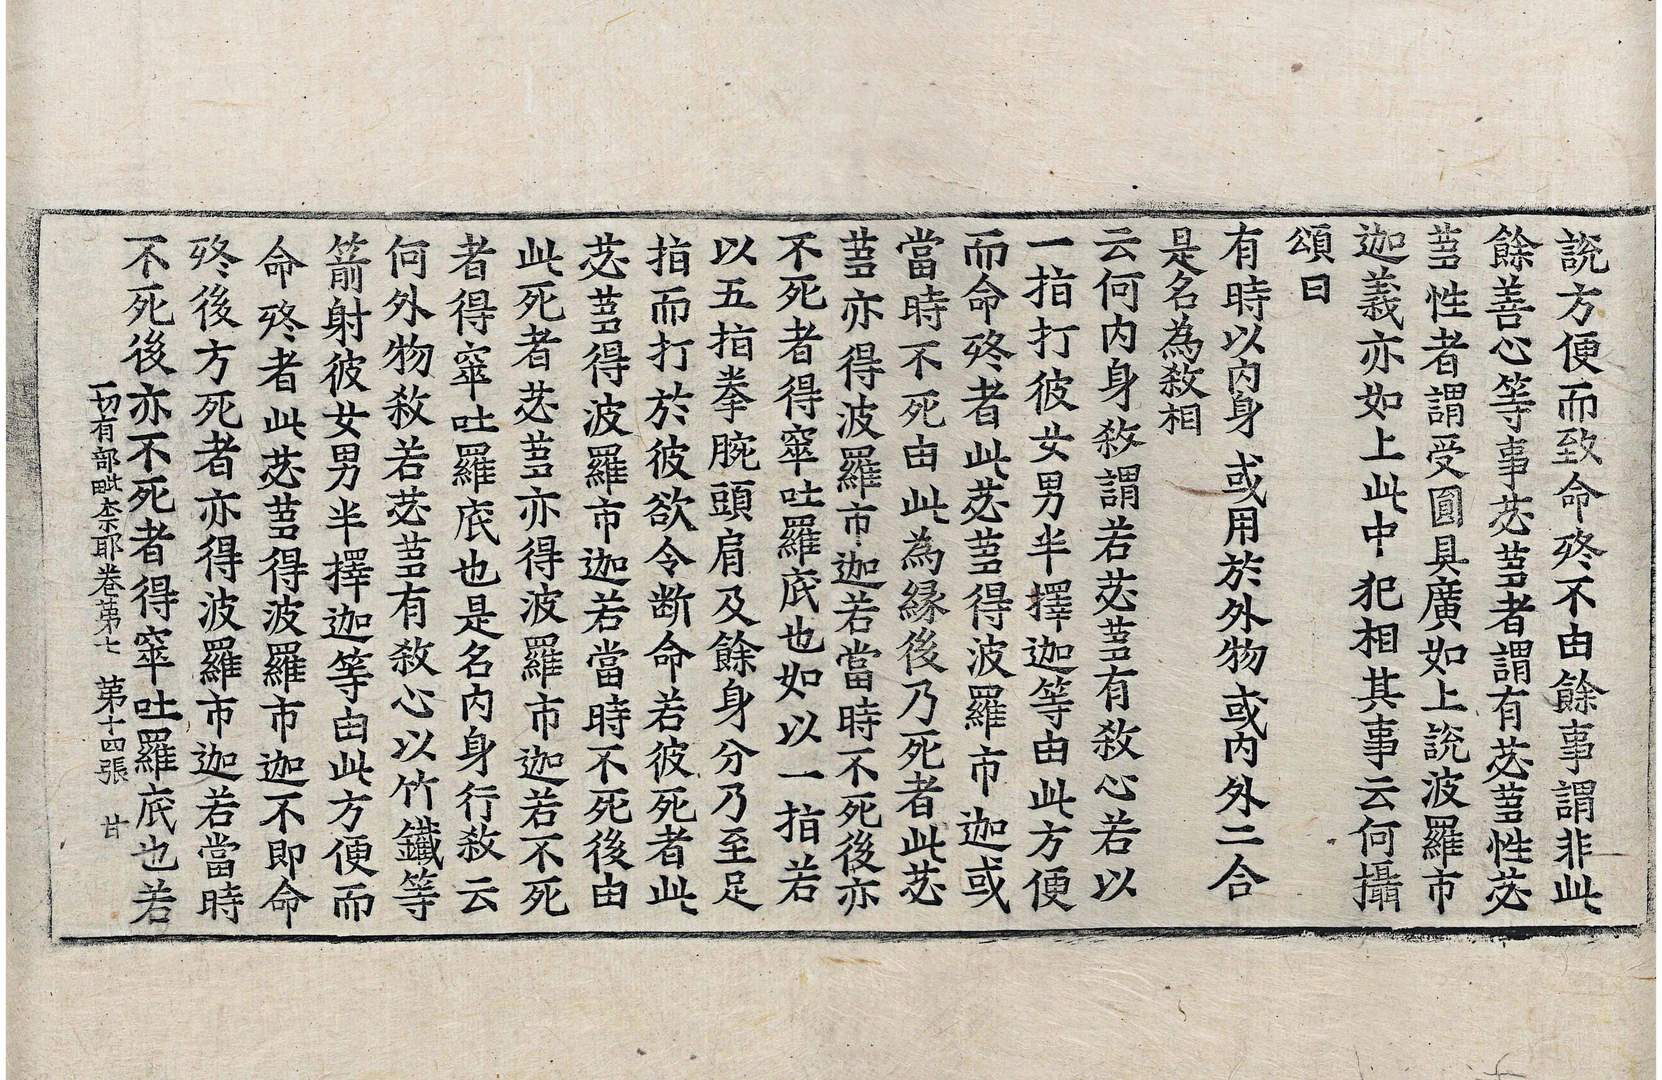 說方便而致命終不由餘事謂非此
餘善心等事苾芻者謂有苾芻性苾
芻性者謂受圓具廣如上說波羅市
迦義亦如上此中犯相其事云何攝
頌曰
有時以內身 或用於外物或內外二合
是名為殺相
云何內身殺謂若苾芻有殺心若以
一指打彼女男半擇迦等由此方便
而命終者此苾芻得波羅市迦或
當時不死由此為緣後乃死者此苾
芻亦得波羅市迦若當時不死後亦
不死者得窣吐羅底也如以一指若
以五指拳腕頭肩及餘身分乃至足
指而打於彼欲令断命若彼死者此
苾芻得波羅市迦若當時不死後由
此死者苾芻亦得波羅市迦若不死
者得窣吐羅底也是名內身行殺云
何外物殺若苾芻有殺心以竹鐵等
箭射彼女男半擇迦等由此方便而
命終者此苾芻得波羅市迦不即命
終後方死者亦得波羅市迦若當時
不死後亦不死者得窣吐羅底也若
一切有部毗奈耶卷第七 第十四張 甘